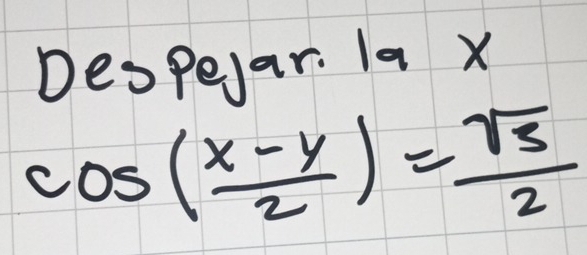 Despejar la x
cos(x-y/2) = √3/2